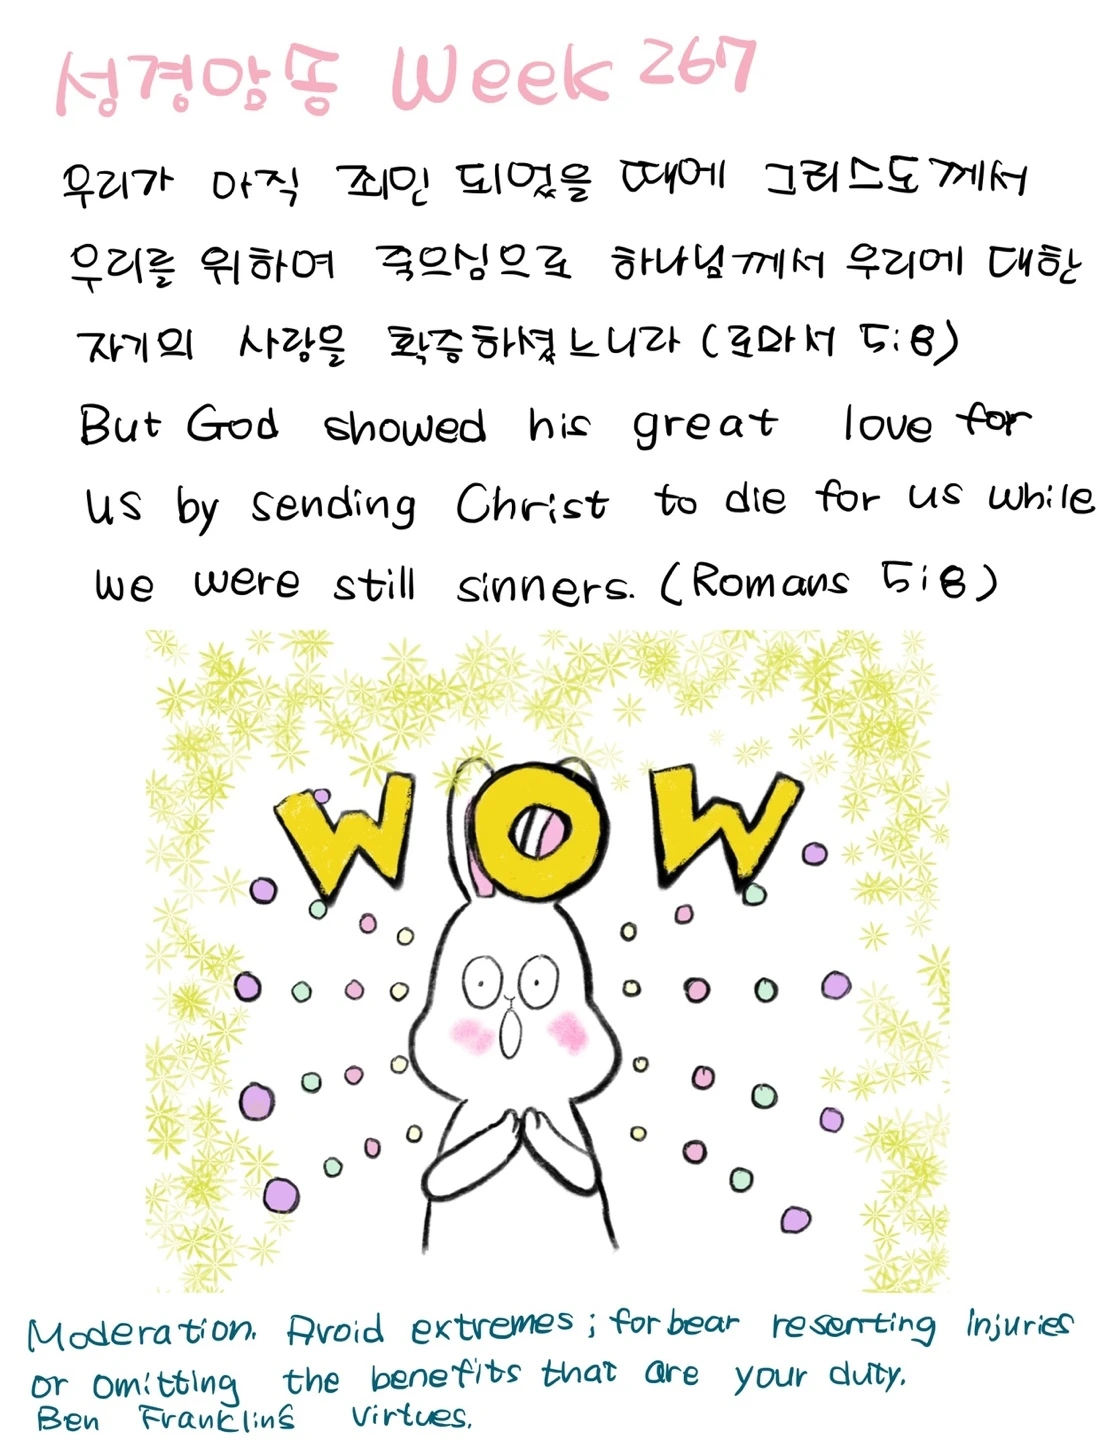 성경암송 Week 267
우리가 아직 죄인 되었을 때에 그리스도께서
우리를 위하여 죽으심으로 하나님께서 우리에 대한
자기의 사랑을 확증하셨느니라 (로마서 5:8)
But God showed his great love for
us by sending Christ to die for us while
we were still sinners. (Romans 5:8)
WOW
Moderation. Avoid extremes; forbear resenting Injuries
or omitting the benefits that are your duty.
Ben Franklin's Virtues.